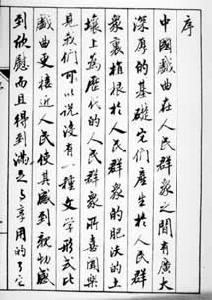 序
中國戲曲在人民群衆之間有廣大
深厚的基礎它们產生於人民群
衆裏植根於人民群衆的肥沃的土
壤上爲歷代的人民群衆所喜闻樂
見我们可以说没有一種文学形式比
戲曲更接近人民使其感到親切感
到欣慰而且得到满足与享用的了它